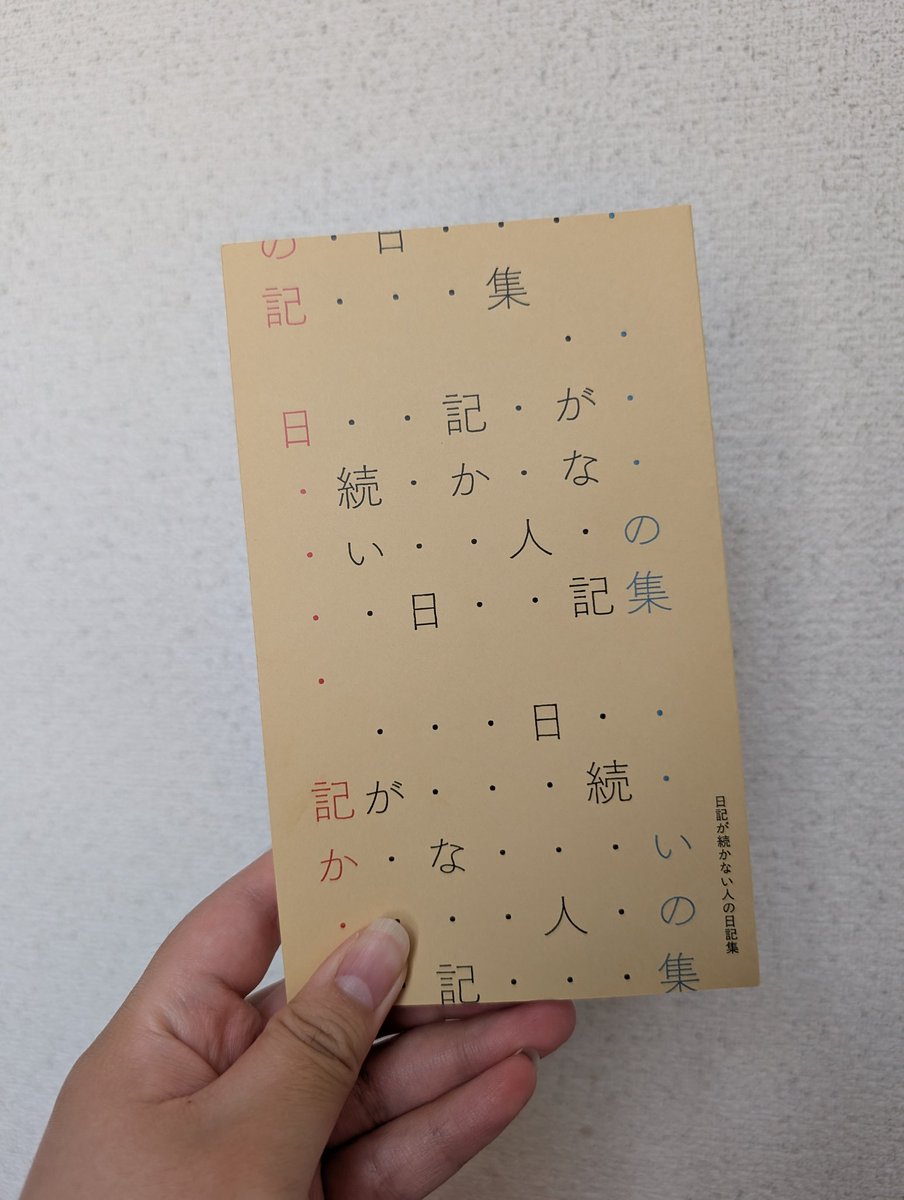 の・日・・・・
記・・・集
・・
日・・記・が・
・続・か・な・
・い・・人・の
・・日・・記集
・
・・・日・・
記が・・・続・
か・な・・・い
・・・・人・の
記・・・集
日記が続かない人の日記集